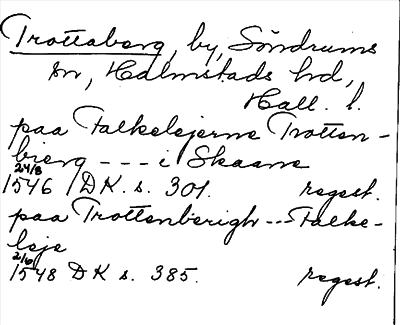 Trottaberg, by, Söndrums
sn, Halmstads hrd,
Hall. l.
paa Falkelejerne Trotten-
bierg --- i Skaane
24/8
1546 DK. s. 301. regest.
paa Trottenberigh --- Falke-
leje
2/6
1548 DK s. 385. regest.